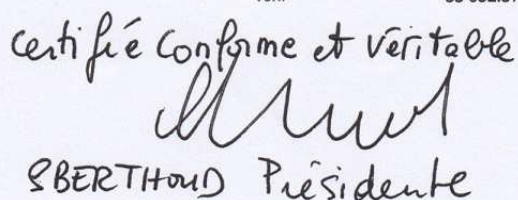 certifié conforme et véritable
SBERTHOUD Présidente